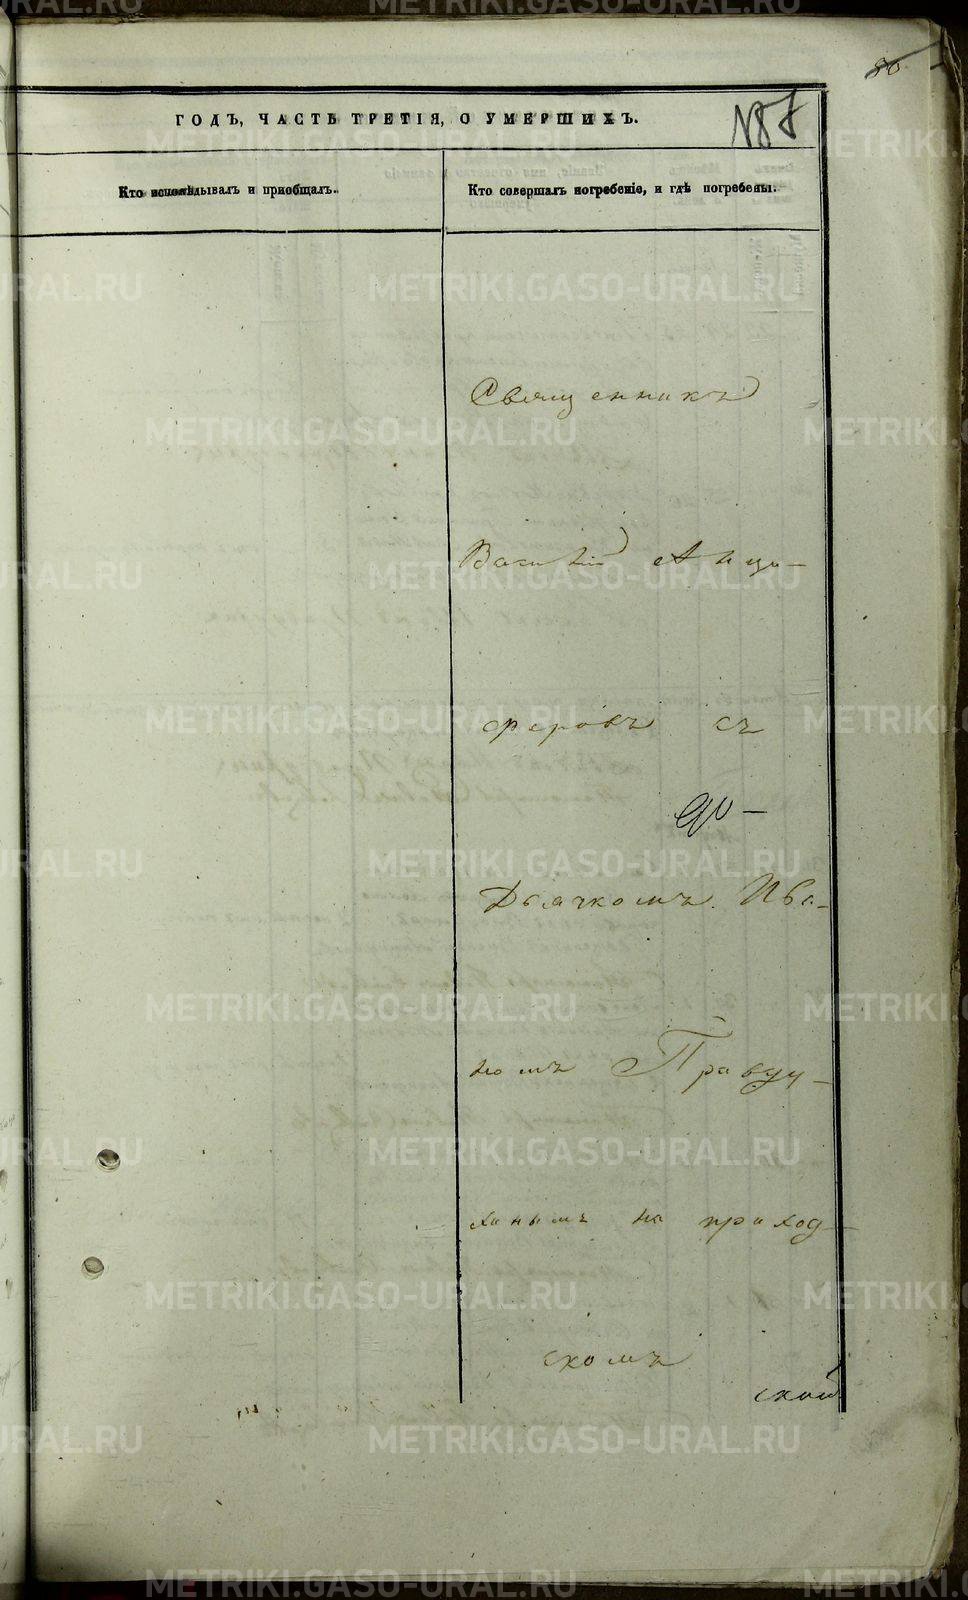 80.
ГОДЪ, ЧАСТЬ ТРЕТІЯ, О УМЕРШИХЪ.
№ 87
Кто исповѣдывалъ и пріобщалъ.
Кто совершалъ погребеніе, и гдѣ погребены.
Священникъ
Василій Анци-
феровъ съ
Дьячкомъ Ива-
номъ
на приход-
скомъ
METRIKI.GASO-URAL.RU